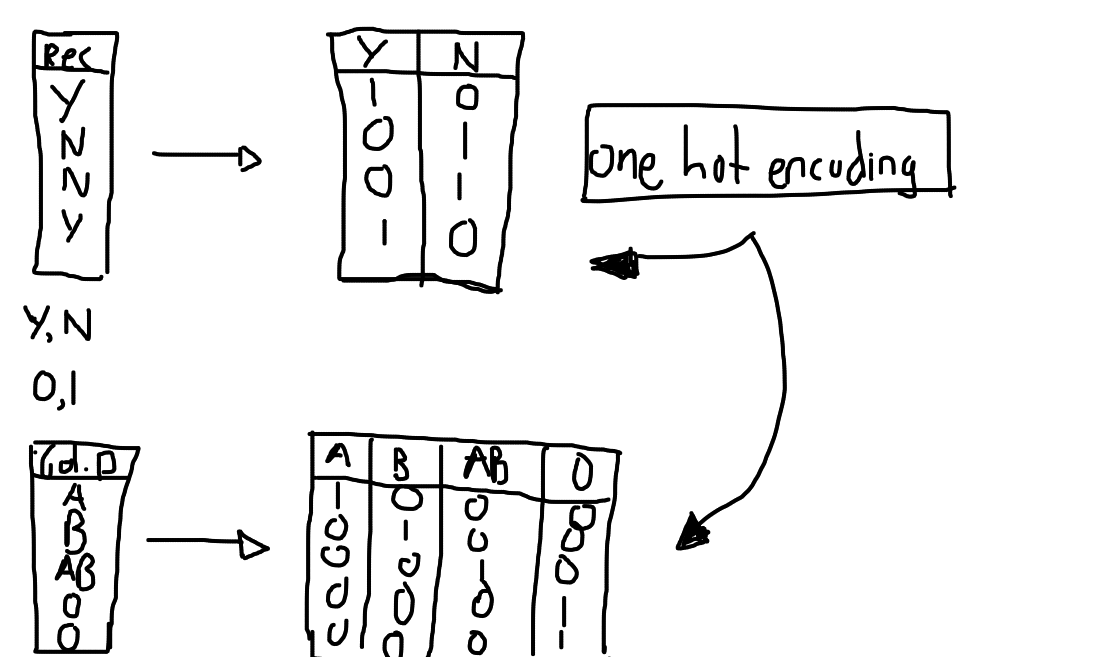 Rec
Y
N
N
Y
Y N
1 0
0 1
0 1
1 0
one hot encoding
Y, N
0, 1
A
B
AB
0
0
A B AB 0
1 0 0 0
0 1 0 0
0 0 1 0
0 0 0 1
0 0 0 1